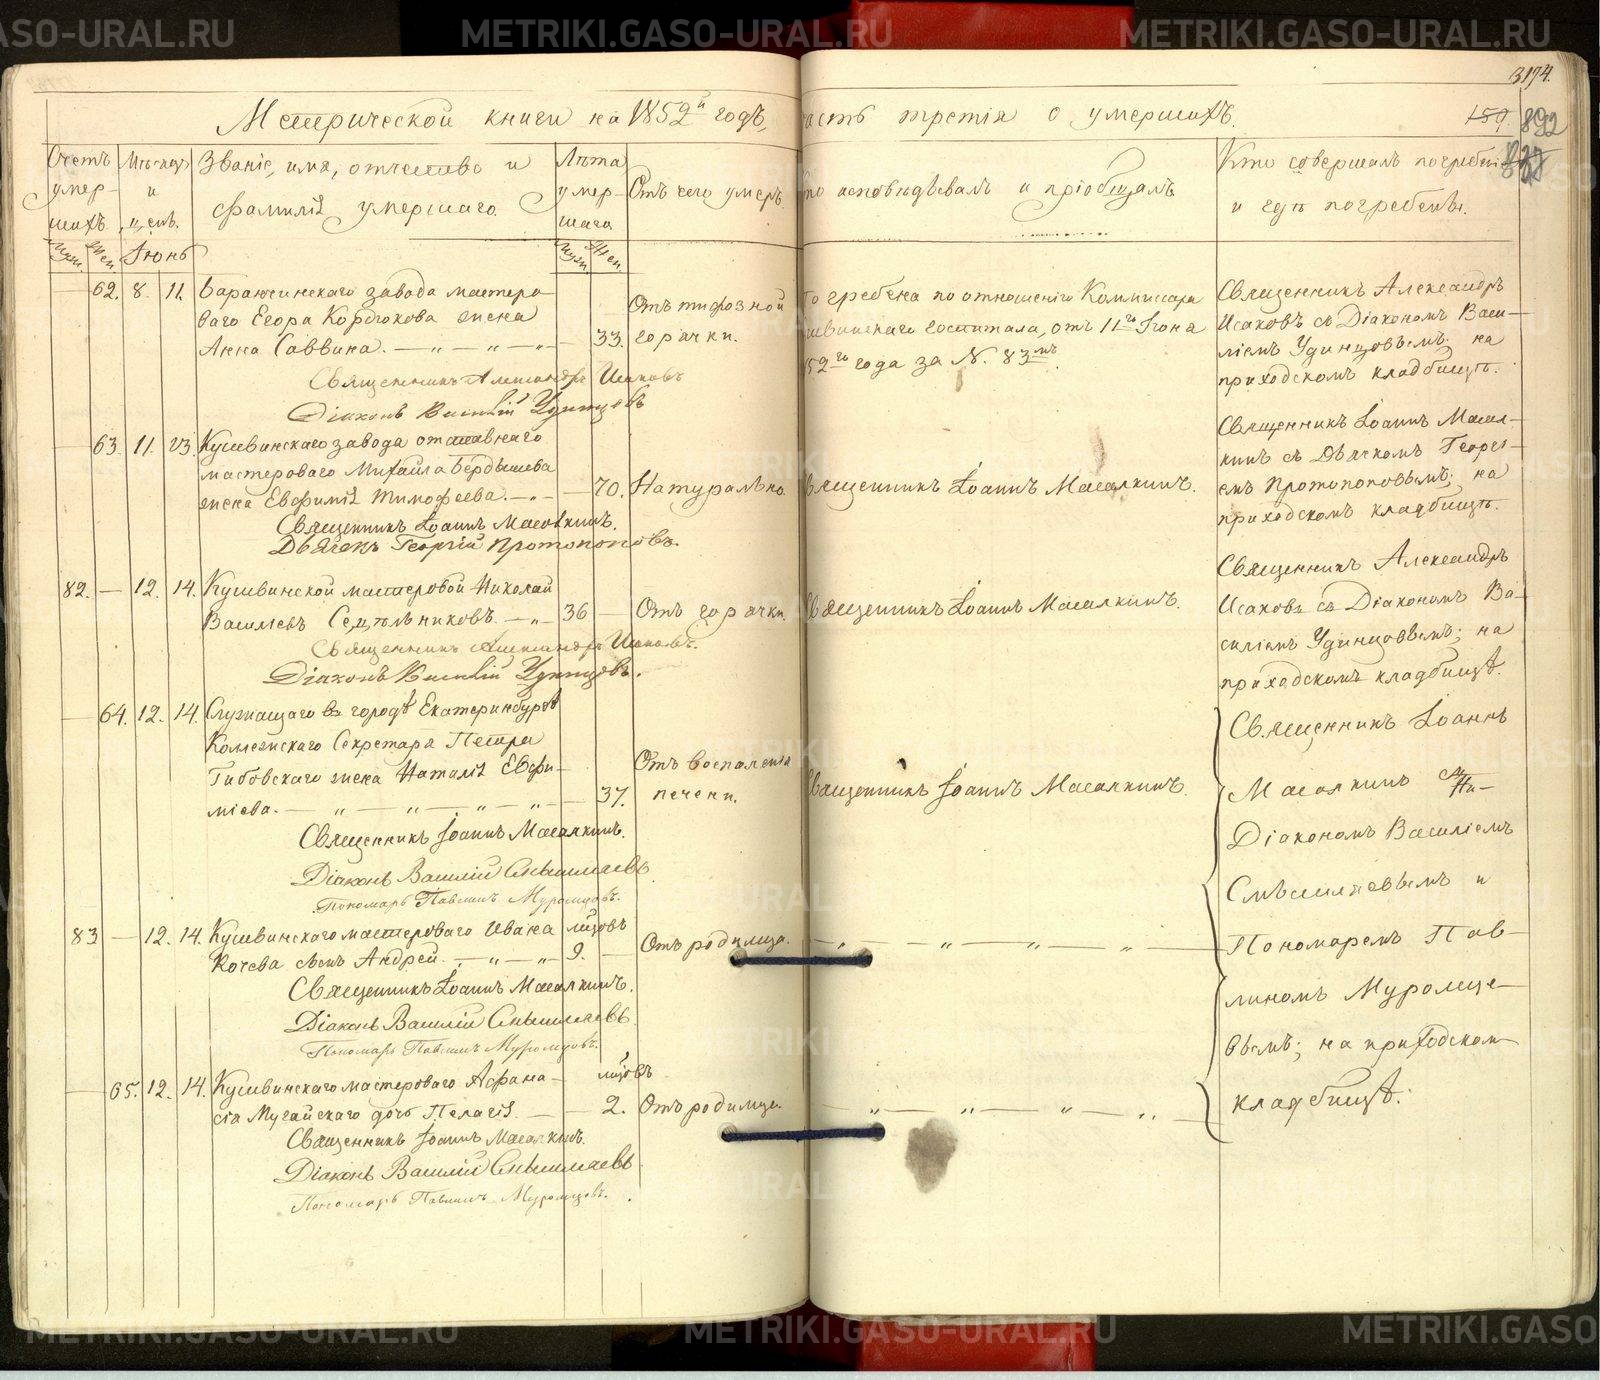 METRIKI.GASO-URAL.RU
3194.
Метрической книги на 1852й годъ, часть третія о умершихъ.
159 892
Счетъ умершихъ.
Мѣсяцъ и день.
Званіе, имя, отчество и фамилія умершаго.
Лѣта умершаго
Отъ чего умеръ
Кто исповѣдывалъ и пріобщалъ
Кто совершалъ погребеніе и гдѣ погребенъ.
Муж. Жен. Іюнь Муж. Жен.
62. 8. 11. Баранчинскаго завода мастеро-
ваго Егора Кордюкова жена
Анна Саввина. 33.
Отъ тифозной
горячки.
Погребена по отношенію Коммисара
госпиталя, отъ 11го Іюня
1852го года за N. 83мъ.
Священникъ Александръ
Исаковъ съ Діакономъ Васи-
ліемъ Удинцовымъ; на
приходскомъ кладбищѣ.
Священникъ Александръ Исаковъ
Діаконъ Василій Удинцовъ
63. 11. 13. Кушвинскаго завода отставнаго
мастероваго Михаила Бердышева
жена Евфимія Тимофеева. 70.
Натурально.
Священникъ Іоаннъ Масалкинъ.
Священникъ Іоаннъ Масал-
кинъ съ Дьячкомъ Георгі-
емъ Протопоповымъ; на
приходскомъ кладбищѣ.
Священникъ Іоаннъ Масалкинъ.
Дьячекъ Георгій Протопоповъ.
82. 12. 14. Кушвинской мастеровой Николай
Василіевъ Сѣдѣльниковъ. 36
Отъ горячки.
Священникъ Іоаннъ Масалкинъ.
Священникъ Александръ
Исаковъ съ Діакономъ Ва-
силіемъ Удинцовымъ; на
приходскомъ кладбищѣ.
Священникъ Александръ Исаковъ.
Діаконъ Василій Удинцовъ.
64. 12. 14. Служащаго въ городѣ Екатеринбургѣ
Колежскаго Секретаря Петра
жена Наталія Евфи-
міева. 37.
Отъ воспаленія
печени.
Священникъ Іоаннъ Масалкинъ.
Священникъ Іоаннъ Масалкинъ.
Діаконъ Василій Смышляевъ
Пономарь Павлинъ Муромцовъ.
83 12. 14. Кушвинскаго мастероваго Ивана
Кочева сынъ Андрей. 9.
Отъ родимца.
Священникъ Іоаннъ Масалкинъ.
Діаконъ Василій Смышляевъ
Пономарь Павлинъ Муромцовъ.
65. 12. 14. Кушвинскаго мастероваго Афана-
сія Мугайскаго дочь Пелагія. 2.
Отъ родимца.
Священникъ Іоаннъ Масалкинъ.
Діаконъ Василій Смышляевъ
Пономарь Павлинъ Муромцовъ.
Священникъ Іоаннъ
Масалкинъ съ
Діакономъ Василіемъ
Смышляевымъ и
Пономаремъ Пав-
линомъ Муромце-
вымъ; на приходском
кладбищѣ.